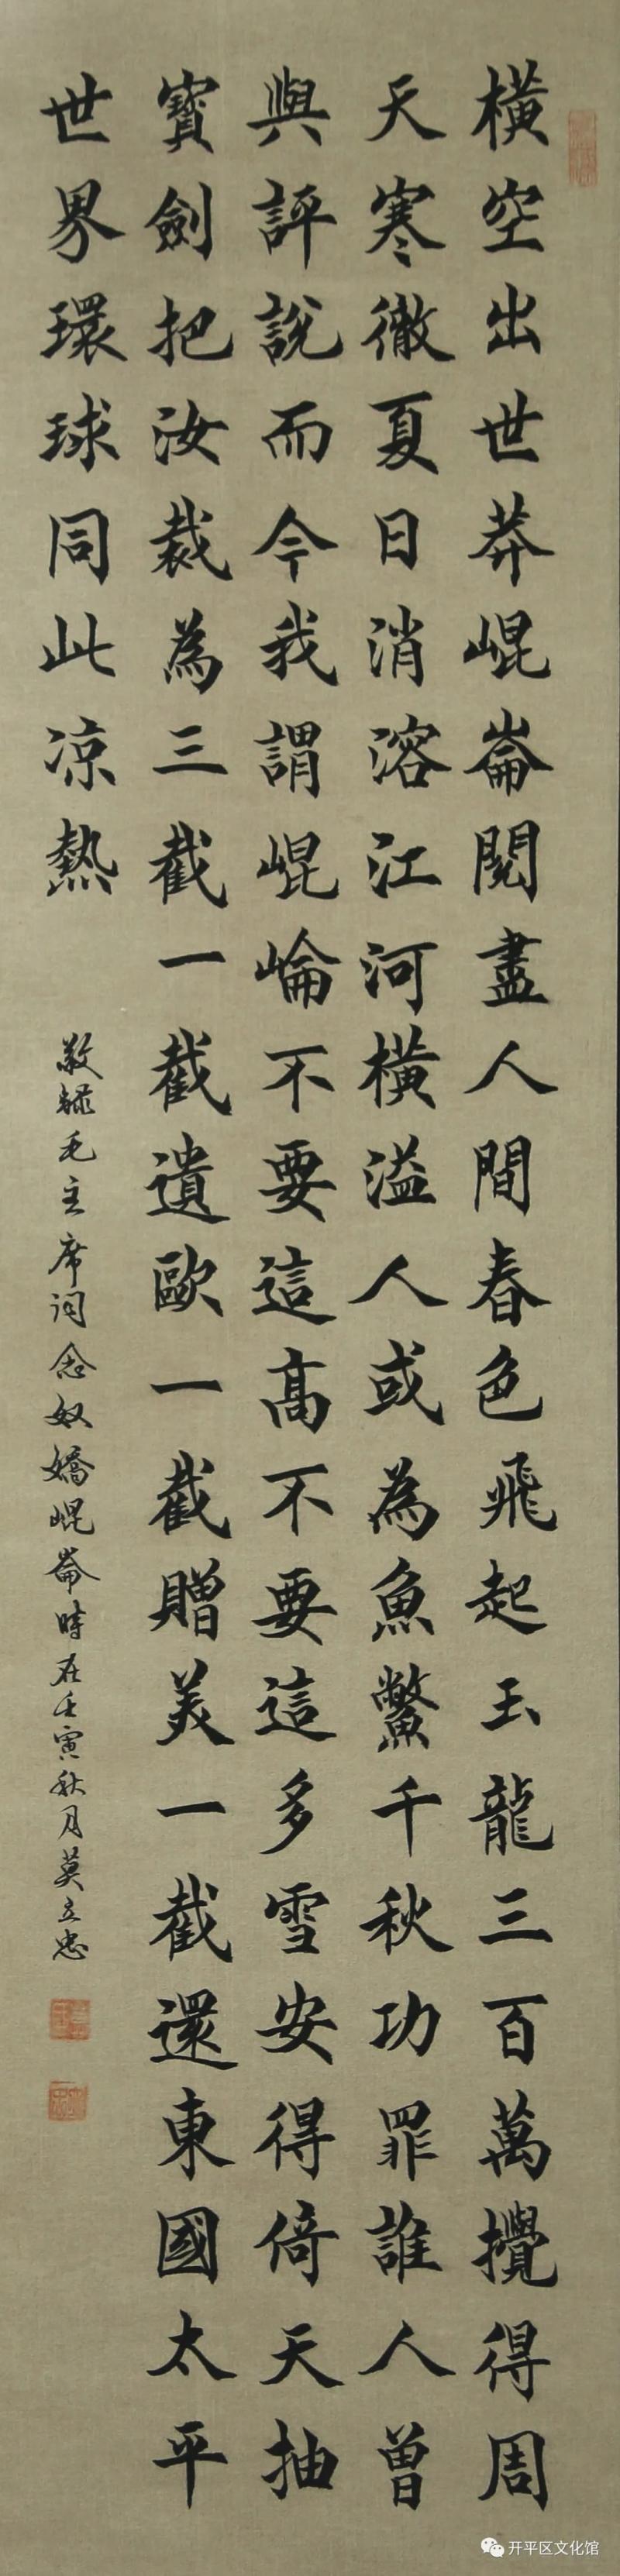 橫空出世莽崐崙閱盡人間春色飛起玉龍三百萬攪得周
天寒徹夏日消溶江河橫溢人或為魚鱉千秋功罪誰人曾
與評說而今我謂崐崘不要這高不要這多雪安得倚天抽
寶劍把汝裁為三截一截遺歐一截贈美一截還東國太平
世界環球同此涼熱
敬錄毛主席词念奴嬌崐崙時在壬寅秋月莫立忠
开平区文化馆